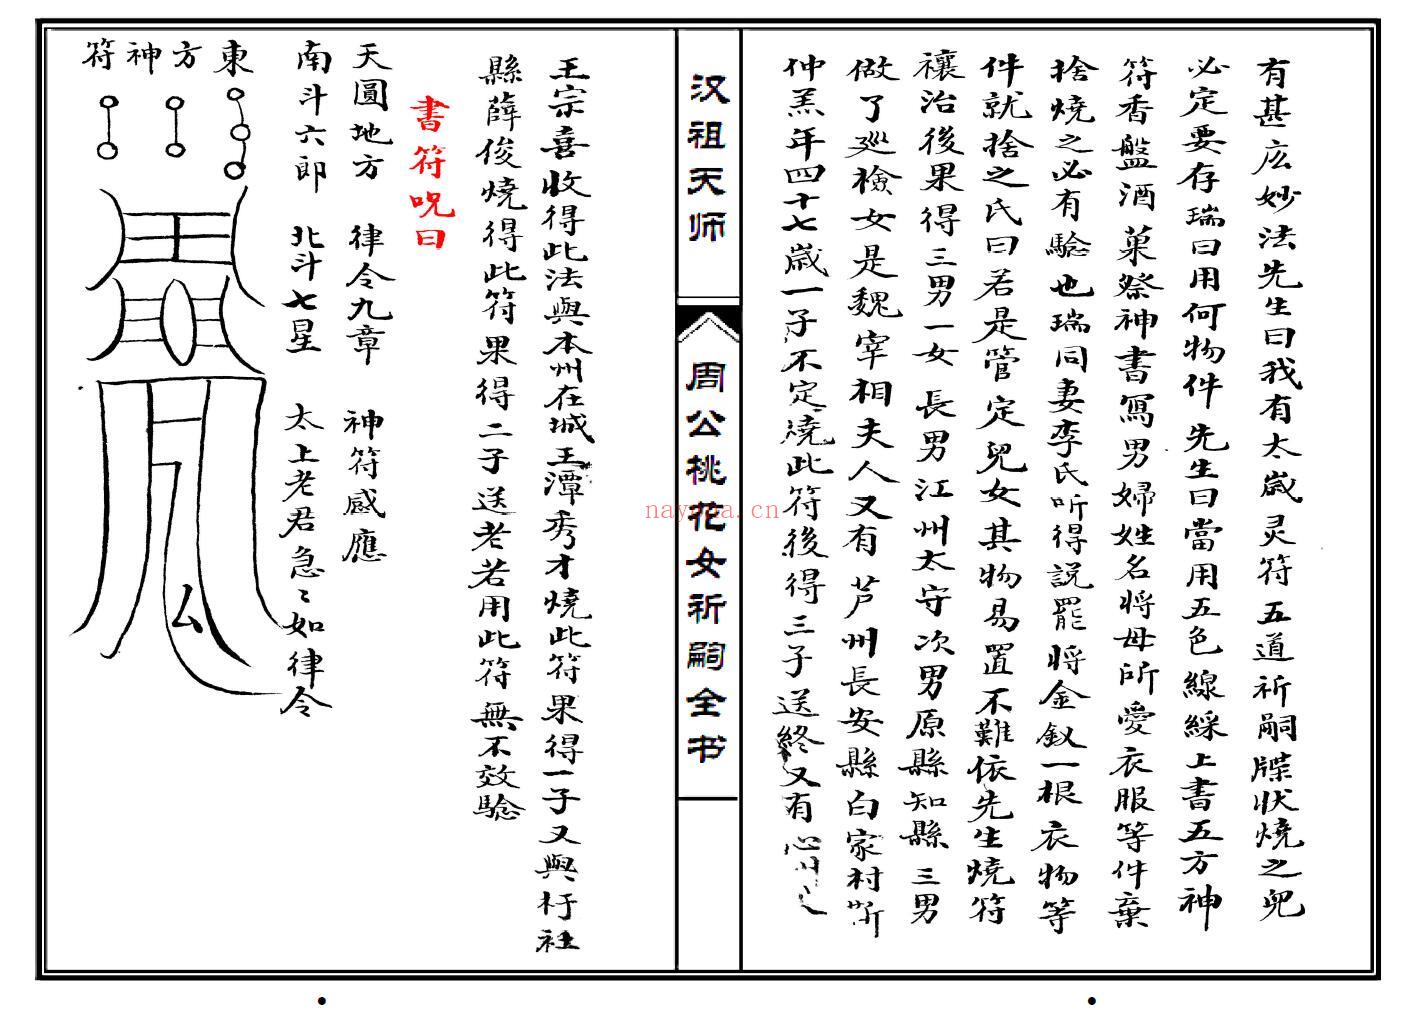 有甚広妙法先生曰我有太歲灵符五道祈嗣牒状燒之兒
必定要存瑞曰用何物件先生曰當用五色線綵上書五方神
符香盤酒菓祭神書寫男婦姓名将母所愛衣服等件棄
捨燒之必有驗也瑞同妻李氏听得説罷将金釵一根衣物等
件就捨之氏曰若是管定兒女其物易置不難依先生燒符
禳治後果得三男一女長男江州太守次男原縣知縣三男
做了巡檢女是魏宰相夫人又有芦州長安縣白家村
仲羔年四十七歲一子不定燒此符後得三子送終又有心州
汉祖天师
周公桃花女祈嗣全书
王宗喜收得此法與本州在城王潭秀才燒此符果得一子又與杅社
縣薛俊燒得此符果得二子送老若用此符無不效驗
書符呪曰
天圓地方 律令九章 神符感應
南斗六郎 北斗七星 太上老君急〻如律令
東方神符
nayona.cn